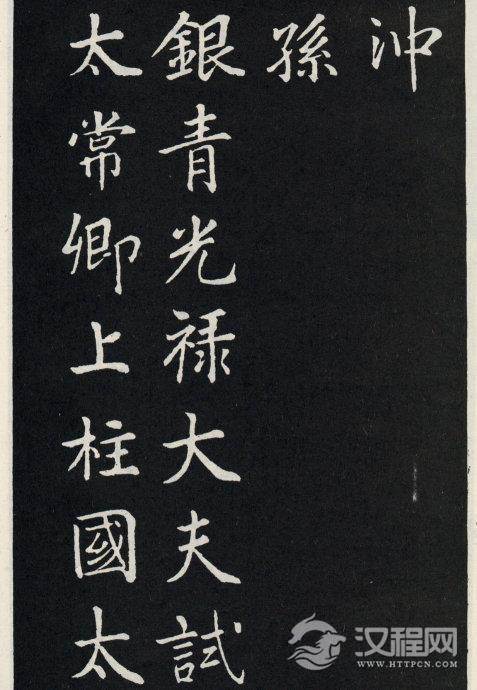 沖
孫
銀青光禄大夫試
太常卿上柱國太
汉程网
WWW.HTTPCN.COM